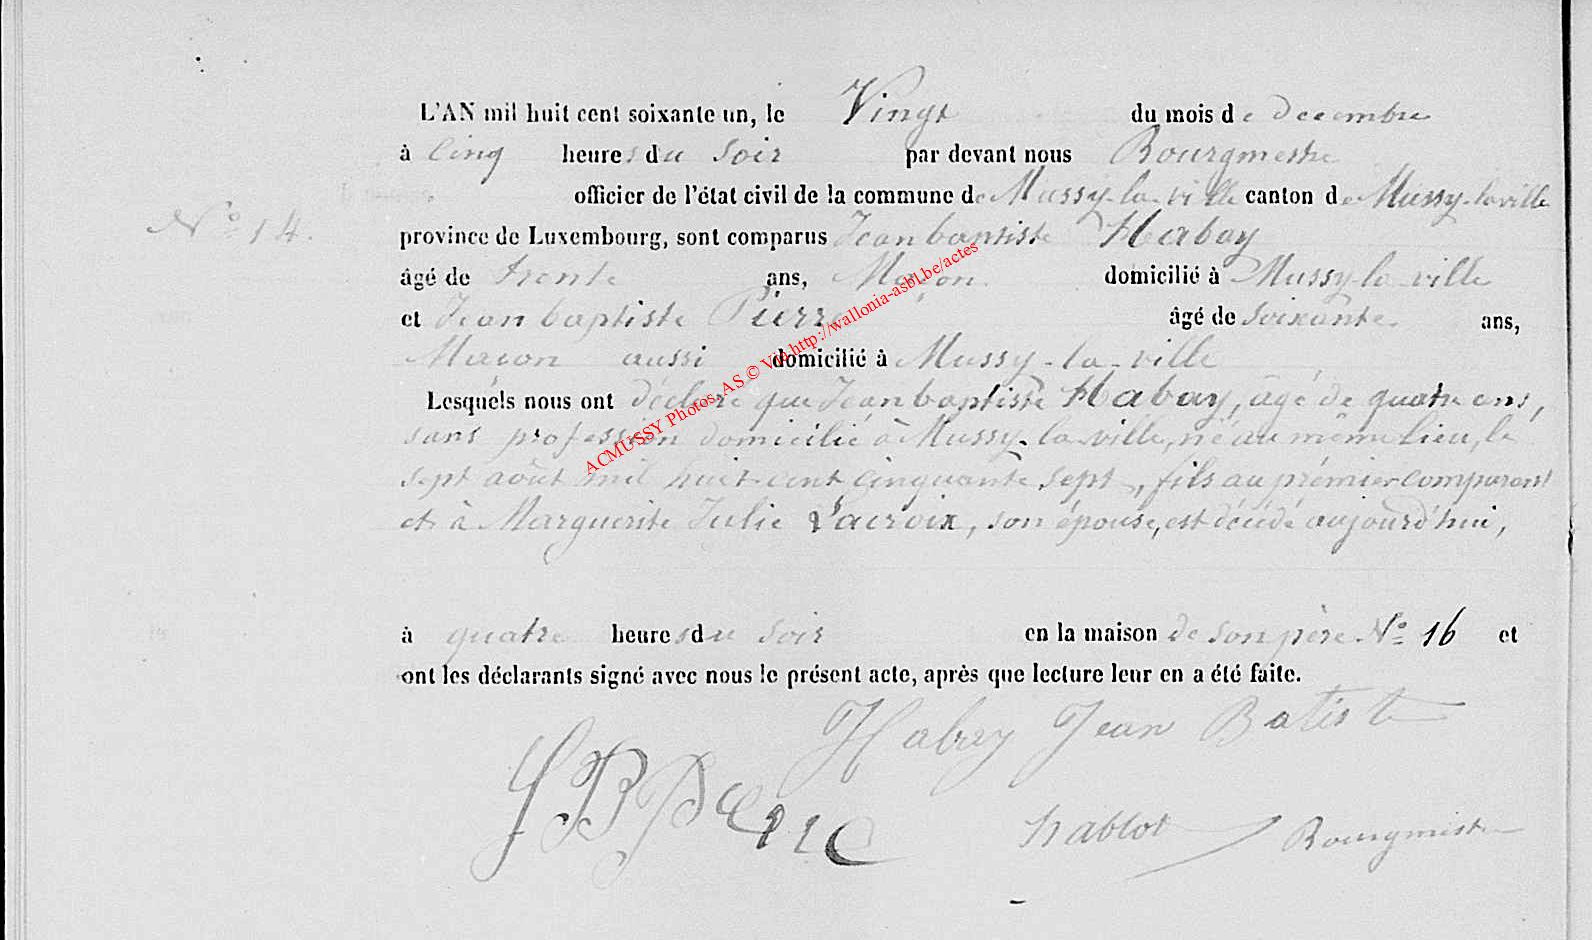 L'AN mil huit cent soixante un, le Vingt du mois de Decembre
à Cinq heures du Soir par devant nous Bourgmestre
officier de l'état civil de la commune de Mussy-la-ville canton de Mussy-laville
N° 14.
province de Luxembourg, sont comparus Jean baptiste Habay
âgé de trente ans, Maçon domicilié à Mussy-la-ville
et Jean baptiste Pierre âgé de Soixante ans,
Macon aussi domicilié à Mussy-la-ville
Lesquels nous ont déclaré que Jean baptiste Habay, âgé de quatre ans,
sans profession domicilié à Mussy-la-ville, né au même lieu, le
sept août mil huit cent cinquante sept, fils au prémier comparant
et à Marguerite Julie Lacroix, son épouse, est décédé aujourd'hui,
à quatre heures du soir en la maison de son père N° 16 et
ont les déclarants signé avec nous le présent acte, après que lecture leur en a été faite.
Habay Jean Batiste
JB Pierre
hablot Bourgmestre
ACMUSSY Photos. AS © Via http://wallonia-asbl.be/actes